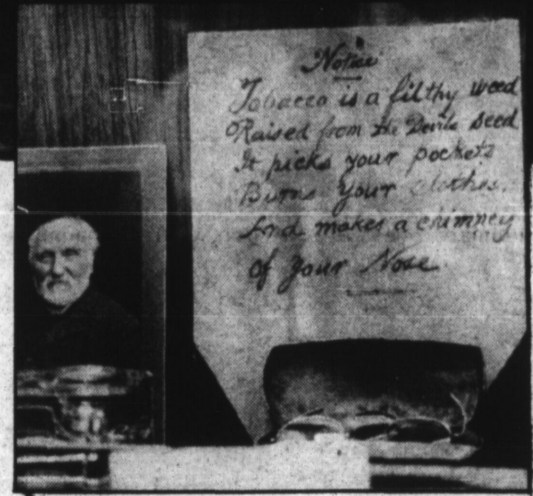 "Notice"
Tobacco is a filthy weed
Raised from the Devils seed
It picks your pockets
Burns your clothes.
And makes a chimney
of your Nose.